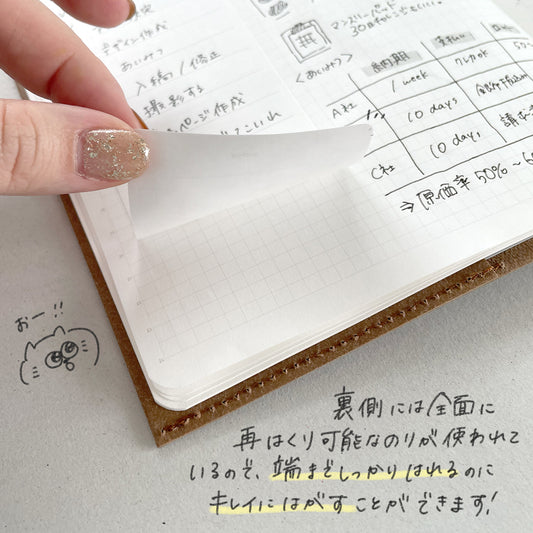 デザイン作成
あいみつ
入稿/修正
撮影する
ページ作成
マンスリーカード
30日チャレンジもいい。
<あいみつ>
納期
支払い
A社
1 week
クレカOK
10 days
C社
10 days
⇒原価率50%~6
おー!!
裏側には全面に
再はくり可能なのりが使われて
いるので、端までしっかりはれるのに
キレイにはがすことができます!